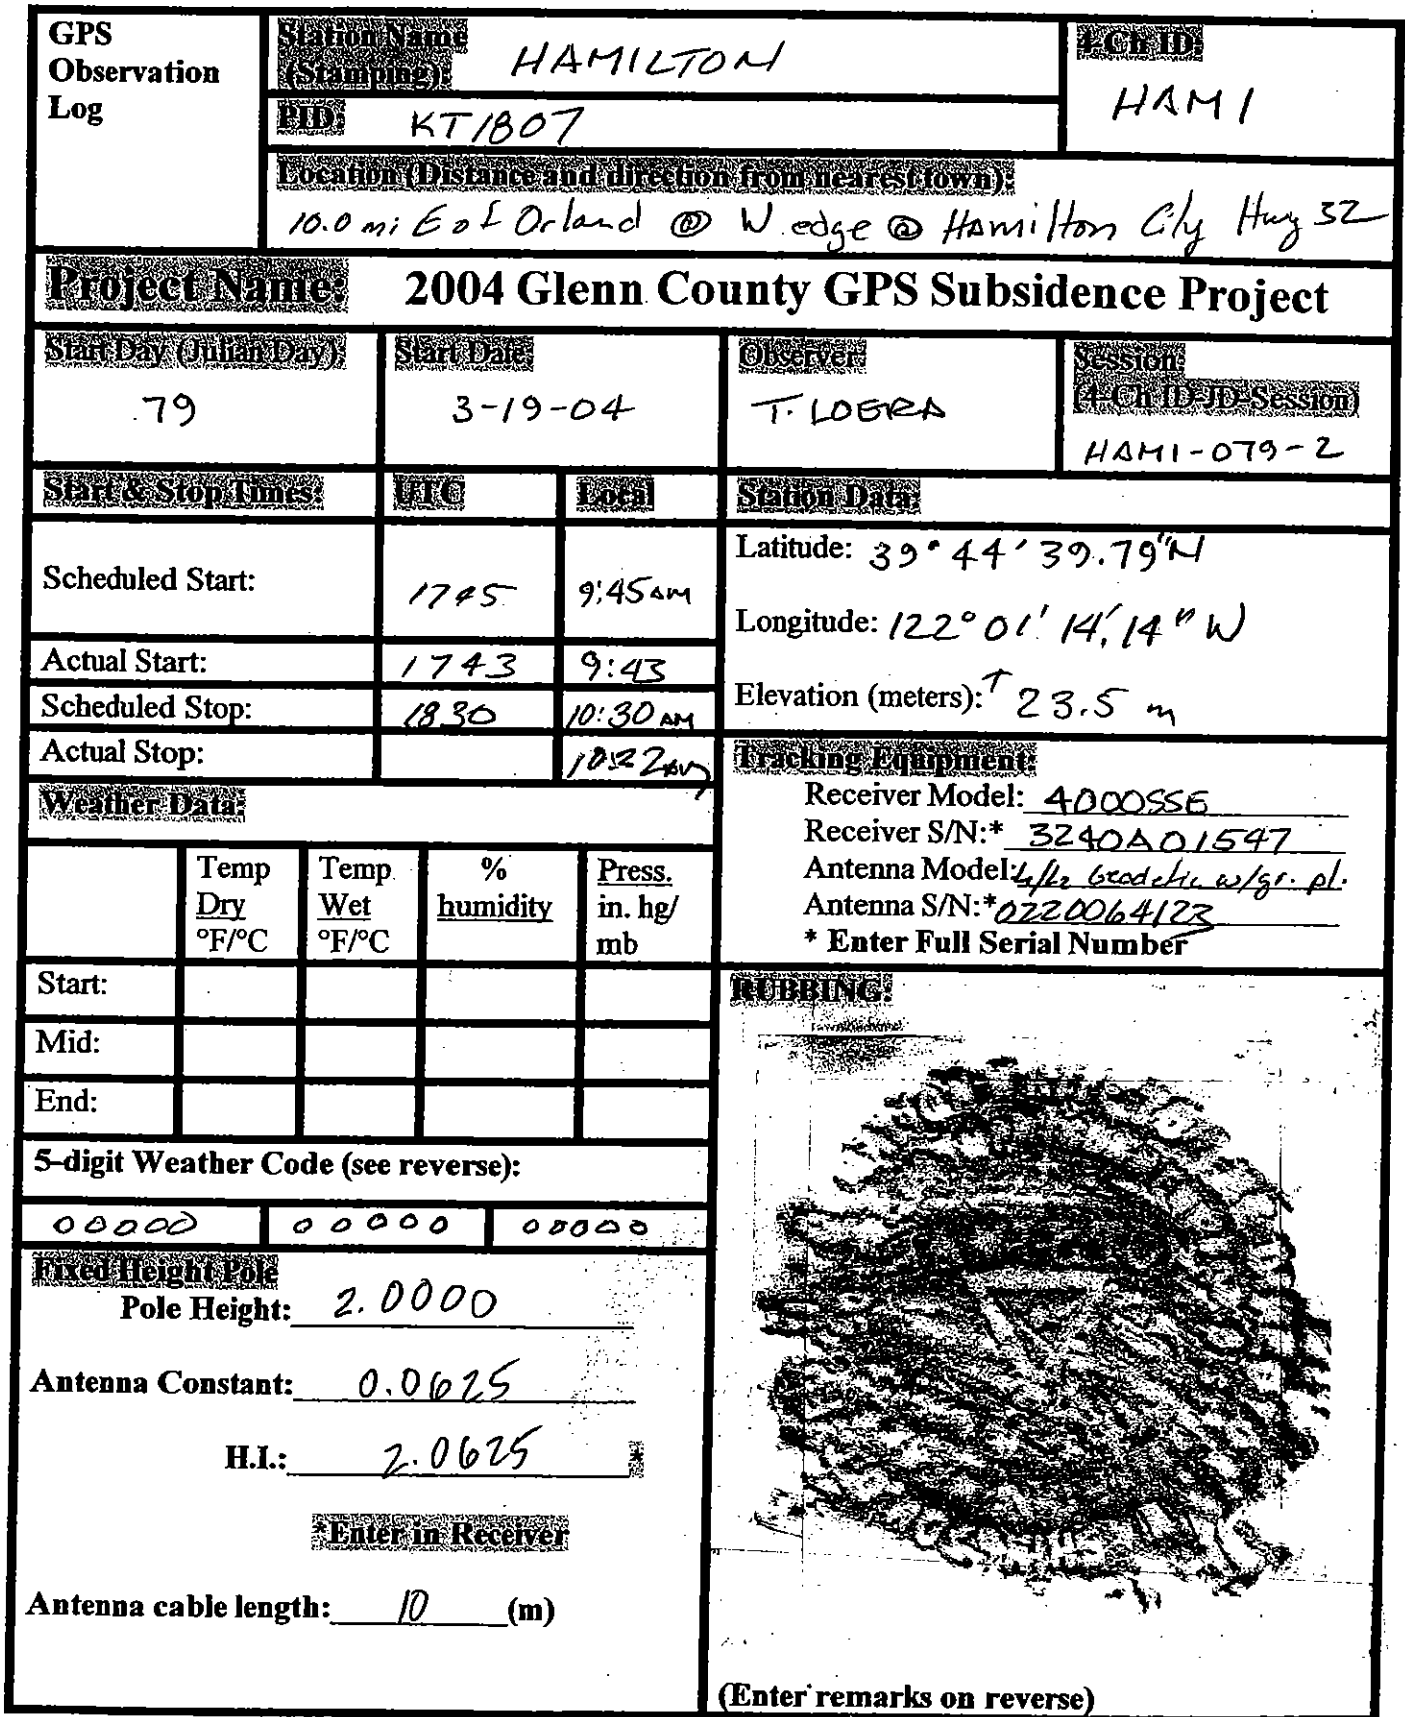 GPS
Observation
Log
Station Name
(Stamping): HAMILTON
4-Ch ID:
HAMI
PID: KT1807
Location (Distance and direction from nearest town):
10.0 mi E of Orland @ W. edge @ Hamilton City Hwy 32
Project Name: 2004 Glenn County GPS Subsidence Project
Start Day (Julian Day):
79
Start Date:
3-19-04
Observer:
T. LOERA
Session:
(4-Ch ID-JD-Session)
HAMI-079-2
Start & Stop Times: UTC Local
Scheduled Start: 1745 9:45 AM
Actual Start: 1743 9:43
Scheduled Stop: 1830 10:30 AM
Actual Stop: 10:22 AM
Station Data:
Latitude: 39° 44' 39.79" N
Longitude: 122° 01' 14.14" W
Elevation (meters): 23.5 m
Tracking Equipment:
Receiver Model: 4000SSE
Receiver S/N:* 3240A01547
Antenna Model: L1/L2 Geodetic w/gr. pl.
Antenna S/N:* 0220064123
* Enter Full Serial Number
Weather Data:
Temp Dry °F/°C
Temp Wet °F/°C
% humidity
Press. in. hg/ mb
Start:
Mid:
End:
5-digit Weather Code (see reverse):
00000 00000 00000
Fixed Height Pole
Pole Height: 2.0000
Antenna Constant: 0.0625
H.I.: 2.0625 *
*Enter in Receiver
Antenna cable length: 10 (m)
RUBBING:
(Enter remarks on reverse)